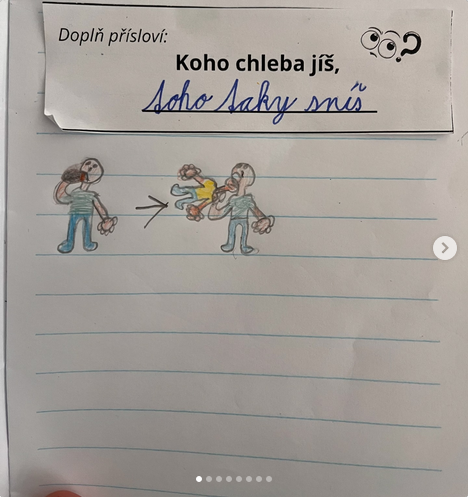 Doplň přísloví:
Koho chleba jíš,
toho taky sníš